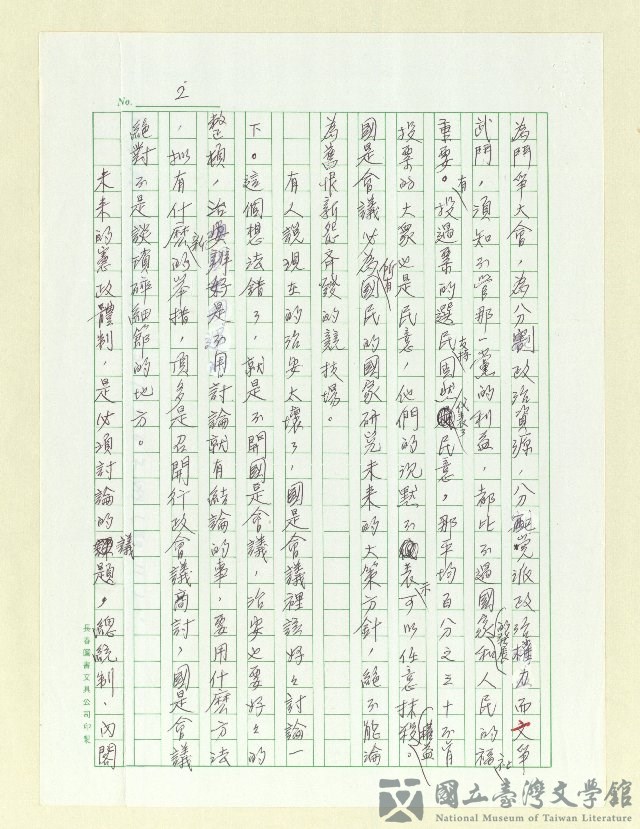 No. 2
為鬥爭大會，為分劃政治資源，分配党派政治權力而文爭
武鬥，須知不管那一黨的利益，都比不過國家的發展和人民的福祉
重要。有投過票的選民固然支持代表了民意，那平均百分之三十不肯
投票的大眾也是民意，他們的沉默不表示可以任意抹殺權益。
國是會議必為所有國民的國家研究未來的大策方針，絕不能淪
為舊恨新怨齊發的競技場。
有人說現在的治安太壞了，國是會議裡該好好討論一
下。這個想法錯了，就是不開國是會議，治安也要好好的
整頓，治安辦好是不用討論就有結論的事，要用什麼方法
，擬有什麼新的舉措，頂多是召開行政會議商討，國是會議
絕對不是談瑣碎細節的地方。
未來的憲政體制，是必須討論的議題，總統制、內閣
長春圖書文具公司印製
國立臺灣文學館
National Museum of Taiwan Literature